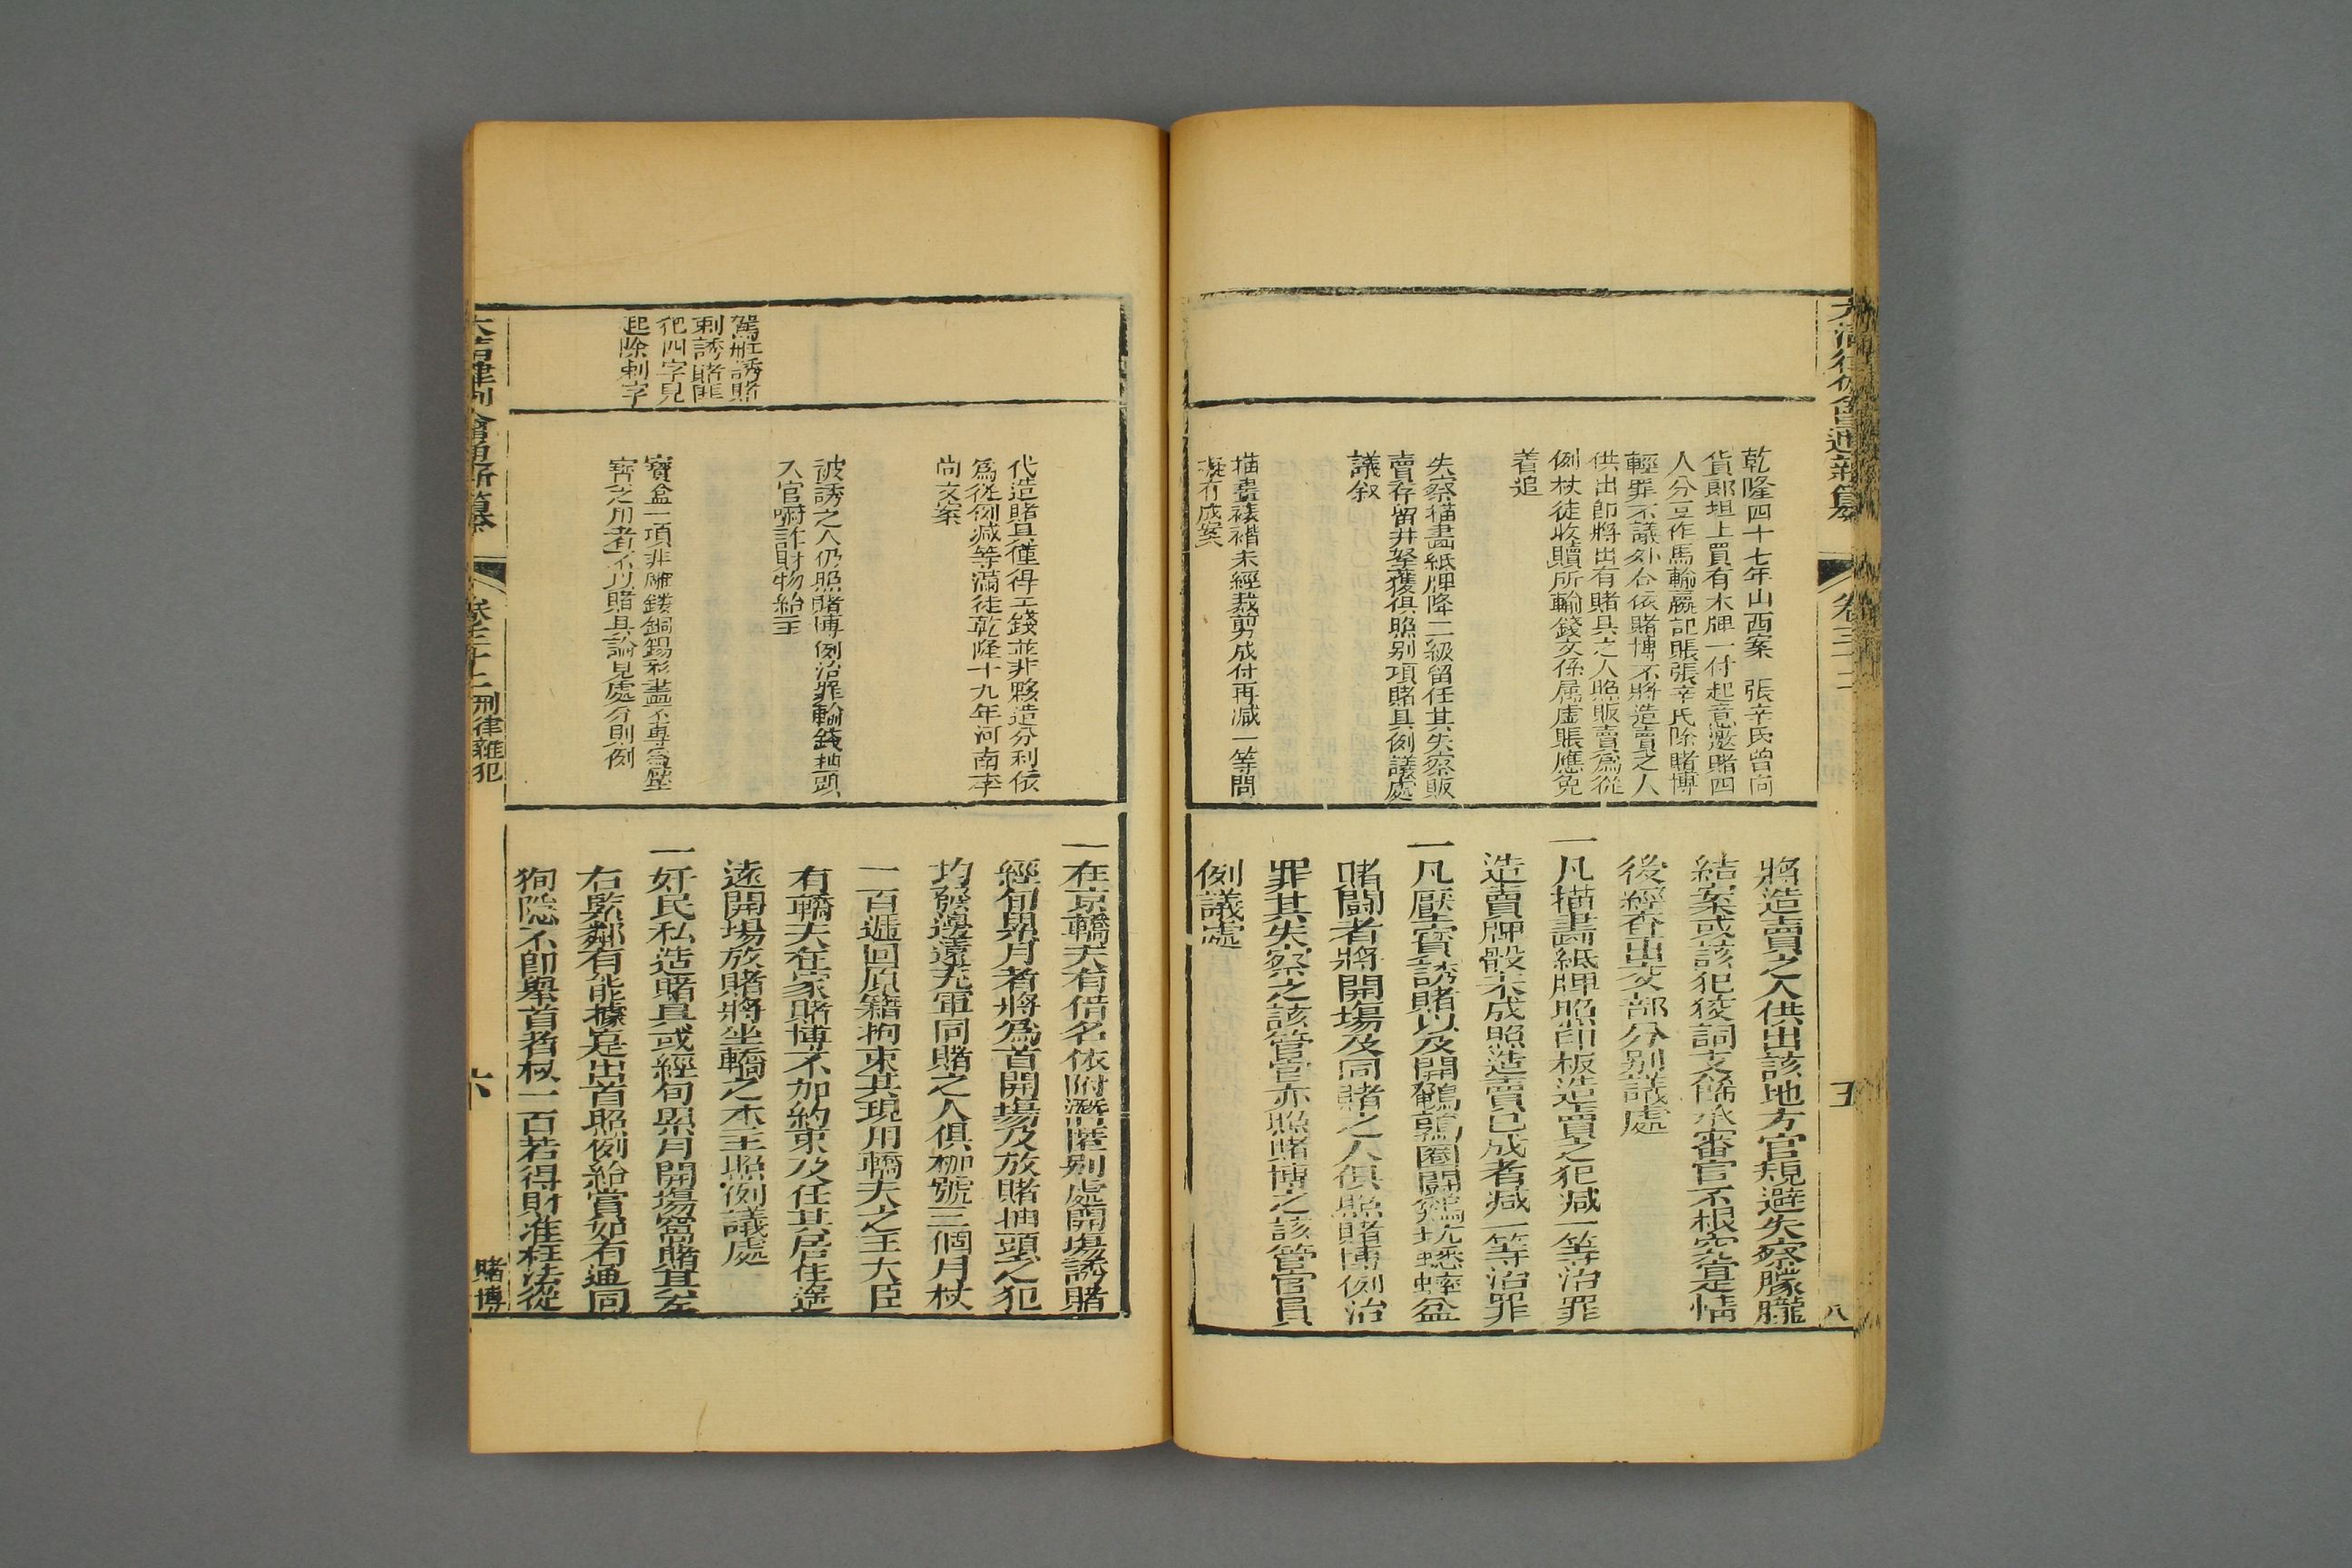 大清律例會通新纂
卷三十二
五
乾隆四十七年山西案 張辛氏曾向
貨郎坦上買有木牌一付起意邀賭四
人分豆作馬輸贏記賬張辛氏除賭博
輕罪不議外合依賭博不將造賣之人
供出即將出有賭具之人照販賣為從
例杖徒收贖所輸錢文係屬虛賬應免
着追
失察描畫紙牌降二級留任其失察販
賣存留并拏獲俱照别項賭具例議處
議叙
描畫裱褙未經裁剪成付再減一等問
擬有成案
將造賣之人供出該地方官規避失察朦朧
結案或該犯狡詞支飾承審官不根究實情
後經查出交部分别議處
一凡描畫紙牌照印板造賣之犯減一等治罪
造賣牌骰未成照造賣已成者減一等治罪
一凡壓寶誘賭以及開鵪鶉圈鬪雞坑蟋蟀盆
賭鬪者將開塲及同賭之人俱照賭博例治
罪其失察之該管官亦照賭博之該管官員
例議處
駕船誘賭
刺誘賭匪
犯四字見
起除刺字
代造賭具僅得工錢並非夥造分利依
為從例減等滿徒乾隆十九年河南李
尚文案
被誘之人仍照賭博例治罪輸錢抽頭
入官嚇詐財物給主
寶盒一項非雕鏤銅錫彩畫不專為壓
寶之用者不以賭具論見處分則例
一在京轎夫有借名依附潛匿别處開塲誘賭
經旬累月者將為首開塲及放賭抽頭之犯
均發邊遠充軍同賭之人俱枷號三個月杖
一百遞回原籍拘束其現用轎夫之王大臣
有轎夫在家賭博不加約束及任其居住窵
遠開塲放賭將坐轎之本主照例議處
一奸民私造賭具或經旬累月開塲窩賭其左
右緊鄰有能據實出首照例給賞如有通同
狥隱不即舉首者杖一百若得財准枉法從
大清律例會通新纂
卷三十二 刑律雜犯
六
賭博